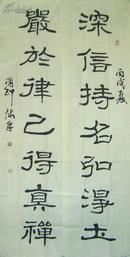 丙戌夏
深信持名弘淨土
嚴於律己得真禪